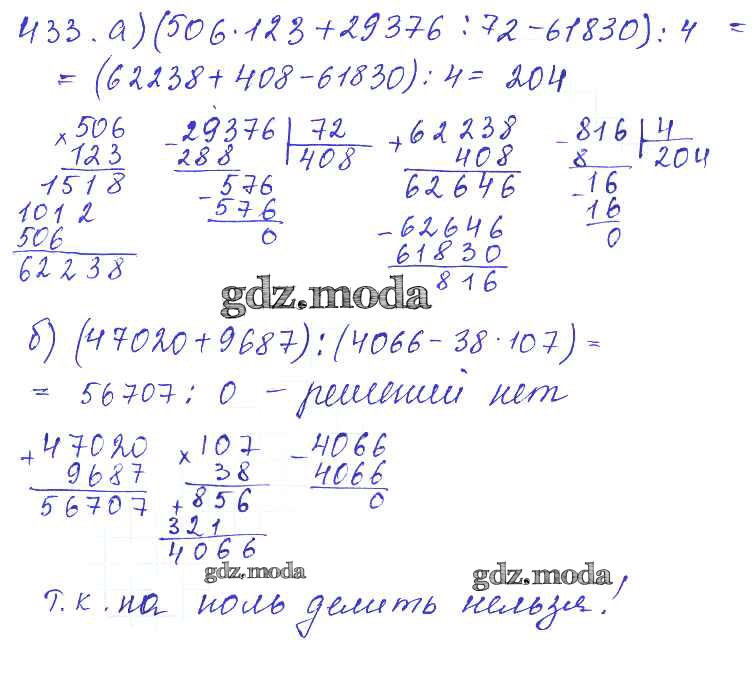 433. а) (506·123+29376:72-61830):4 =
= (62238+408-61830):4= 204
× 506
123
1518
1012
506
62238
- 29376 | 72
288 408
- 576
576
0
+ 62238
408
62646
- 62646
61830
816
- 816 | 4
8 204
- 16
16
0
gdz.moda
б) (47020+9687):(4066-38·107)=
= 56707:0 - решений нет
+ 47020
9687
56707
× 107
38
+ 856
321
4066
- 4066
4066
0
gdz.moda
gdz.moda
Т.к. на ноль делить нельзя!